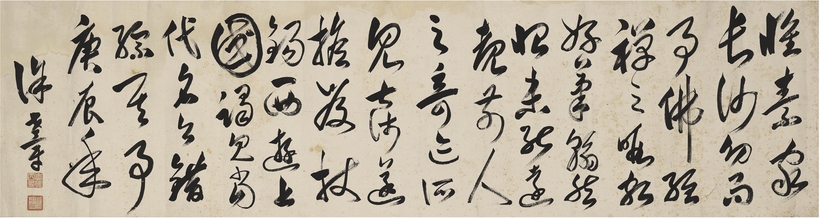 懷素家
長沙幼而
事佛經
禪之暇頗
好筆翰然
恨未能遠
覩前人
之奇迹所
見甚淺遂
擔笈杖
錫西遊上
國謁見當
代名公錯
綜其事
庚辰年